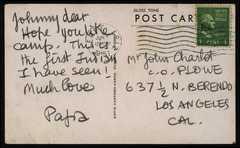 GLOSS TONE
POST CARD
Johnny dear
Hope you like
camp. This is
the first Indian
I have seen!
Much love
Papa
Mr John Charlot
C.O. PLOWE
637 1/2 N. BERENDO
LOS ANGELES
CAL.